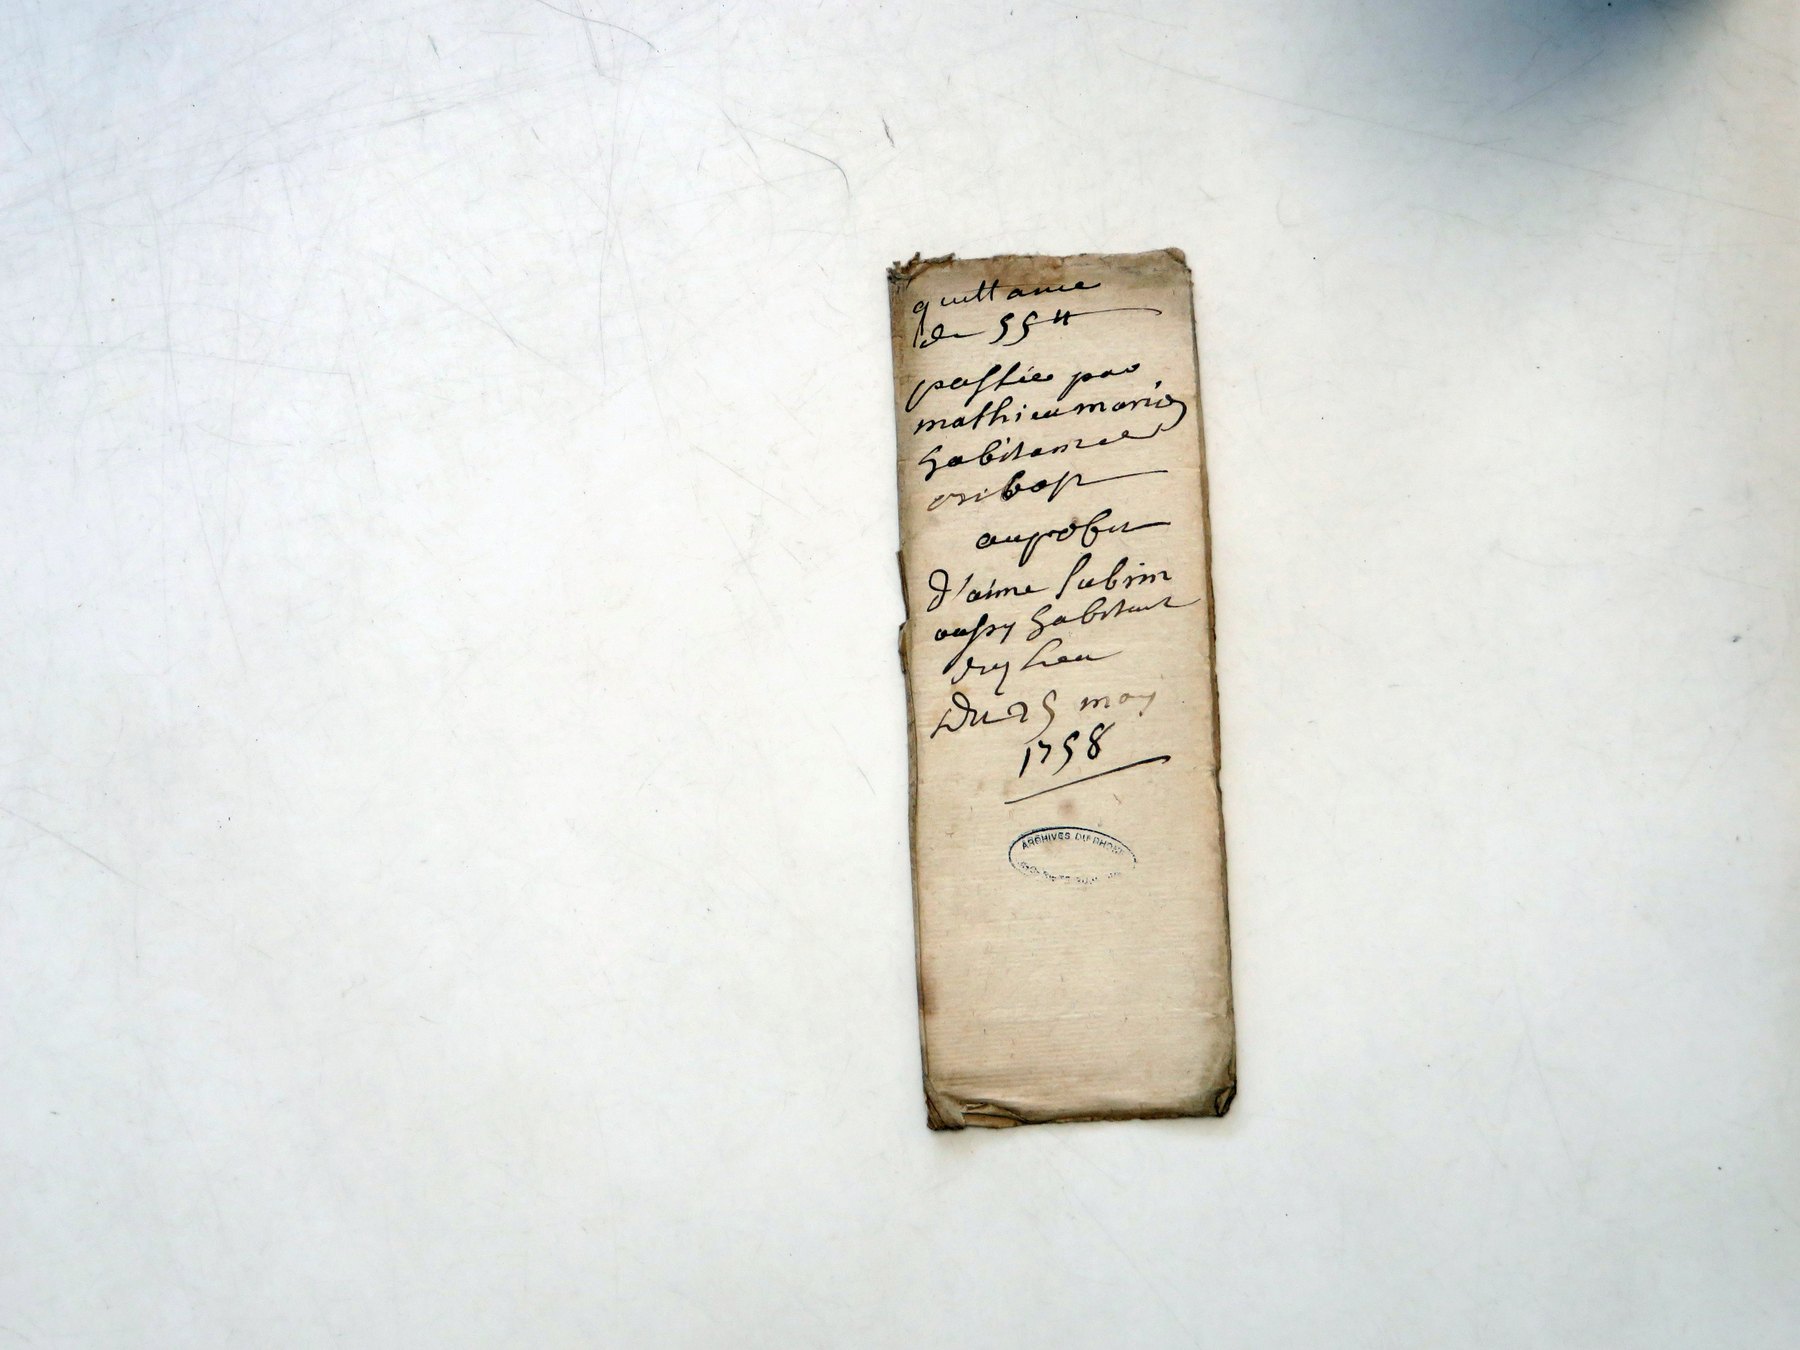 quittance
de 55 ₶
passée par
mathieu marion
habitant
ribost
au profit
d'aime Subrin
aussy habitant
dry lieu
Du 25 may
1758
ARCHIVES DU RHONE